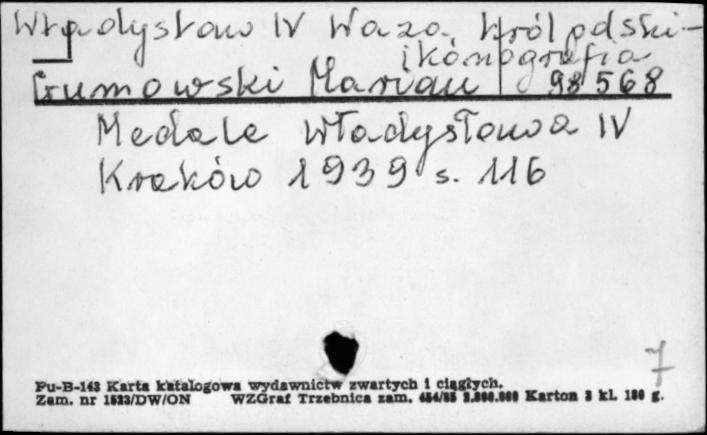 Władysław IV Waza, król polski-
ikonografia
Gumowski Marian 98568
Medale Władysława IV
Kraków 1939 s. 116
7
Pu-B-143 Karta katalogowa wydawnictw zwartych i ciągłych.
Zam. nr 1523/DW/ON WZGraf Trzebnica zam. Karton 3 kl. 180 g.